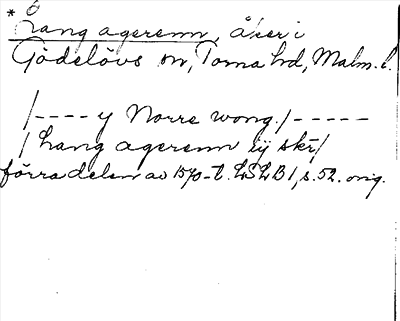 * Lang ageren, åker i
Gödelövs sn, Torna hd, Malm. l.
/---- y Norre wong./-----
/ hang ageren iij skr/
förra delen av 1570-t. LSLB 1, s. 52. orig.